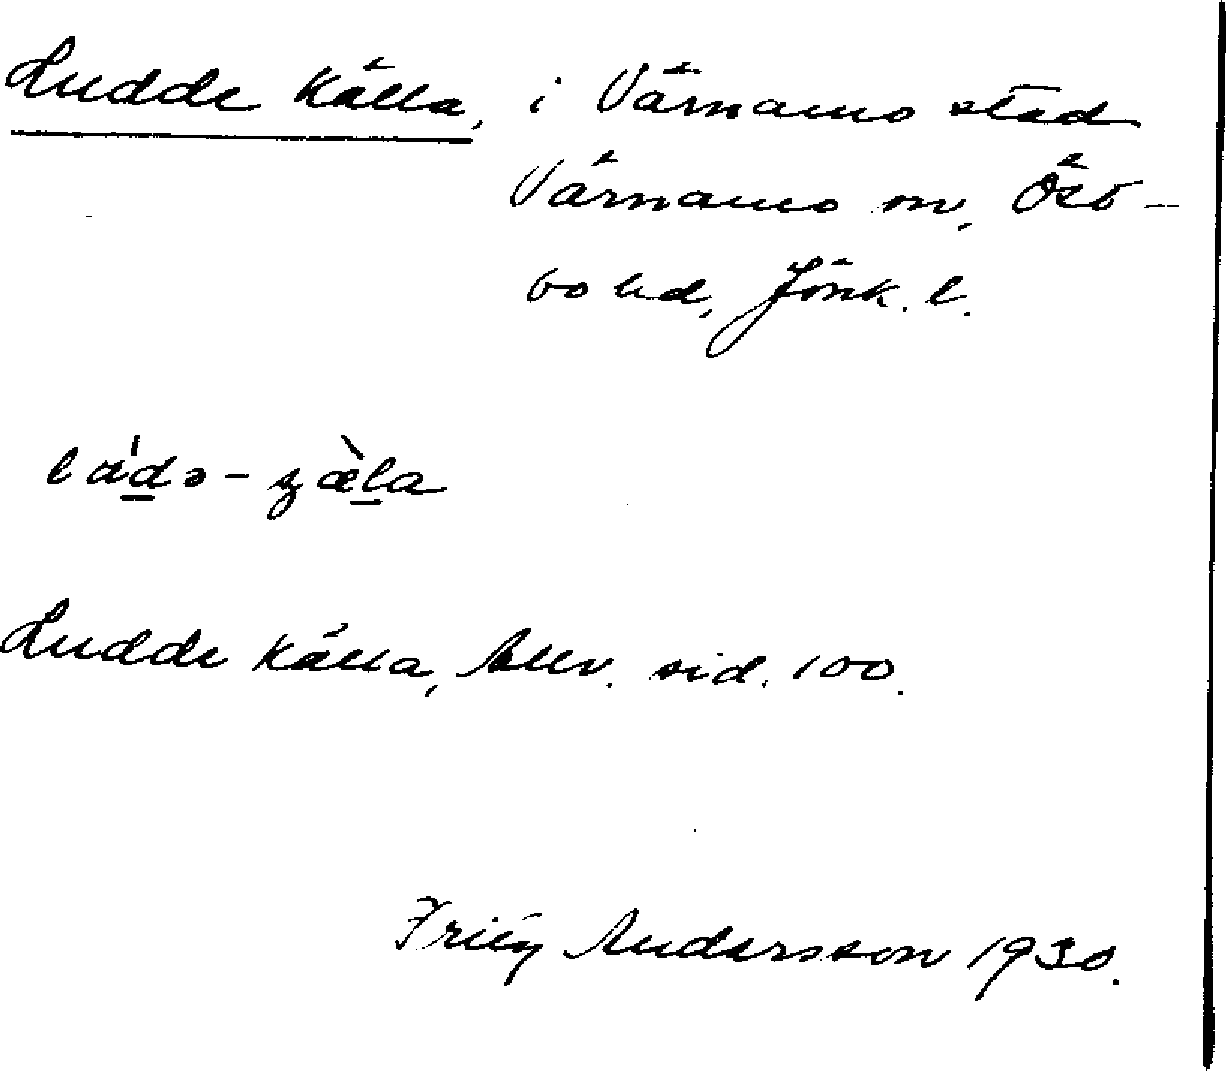 Ludde Källa, i Värnamo stad
Värnamo sn, Öst-
bo hd, Jönk. l.
Ludde källa, Allv. sid. 100.
Andersson 1930.